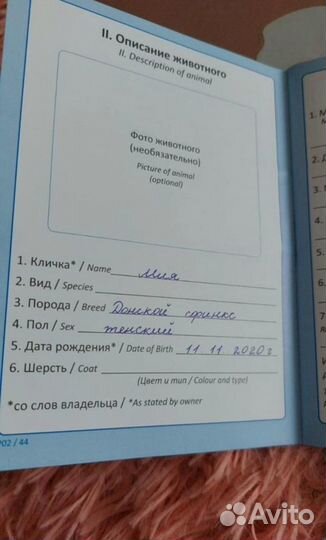 II. Описание животного
II. Description of animal
Фото животного
(необязательно)
Picture of animal
(optional)
1. Кличка* / Name Мия
2. Вид / Species
3. Порода / Breed Донской сфинкс
4. Пол / Sex женский
5. Дата рождения* / Date of Birth 11.11 2020г
6. Шерсть / Coat
(Цвет и тип / Colour and type)
*со слов владельца / *As stated by owner
/ 44
Avito